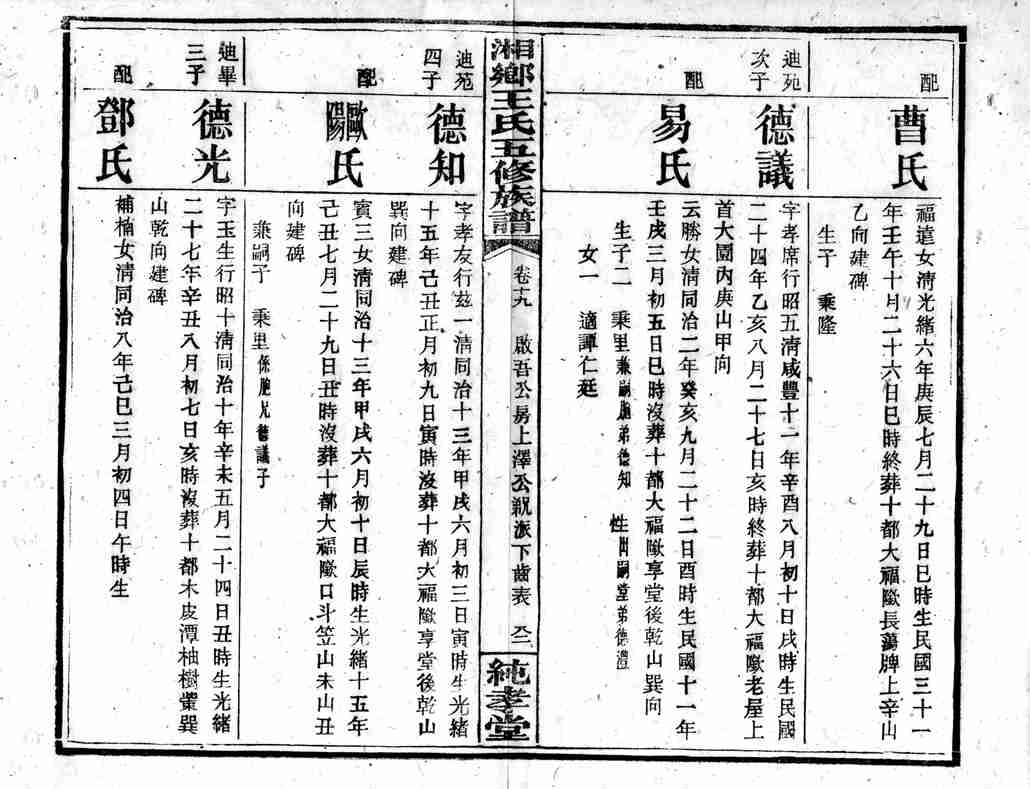 配
曹氏
福遠女清光緒六年庚辰七月二十九日巳時生民國三十一
年壬午十月二十六日巳時終葬十都大福歐長薦牌上辛山
乙向建碑
生子 秉隆
迪苑
次子
德議
字孝席行昭五清咸豐十一年辛酉八月初十日戌時生民國
二十四年乙亥八月二十七日亥時終葬十都大福歐老屋上
首大園內庚山甲向
配
易氏
云勝女清同治二年癸亥九月二十二日酉時生民國十一年
壬戌三月初五日巳時沒葬十都大福歐享堂後乾山巽向
生子二 秉里兼嗣胞弟德知 性出嗣堂弟德灃
女一 適譚仁廷
湘鄉王氏五修族譜
卷十九 啟吾公房上澤公祝派下齒表
純孝堂
迪苑
四子
德知
字孝友行茲一清同治十三年甲戌六月初三日寅時生光緒
十五年己丑正月初九日寅時沒葬十都大福歐享堂後乾山
巽向建碑
配
歐陽氏
賓三女清同治十三年甲戌六月初十日辰時生光緒十五年
己丑七月二十九日丑時沒葬十都大福歐口斗笠山未山丑
向建碑
兼嗣子 秉里係胞兄德議子
迪畢
三子
德光
字玉生行昭十清同治十年辛未五月二十四日丑時生光緒
二十七年辛丑八月初七日亥時沒葬十都木皮潭柚樹巽
山乾向建碑
配
鄧氏
補楠女清同治八年己巳三月初四日午時生